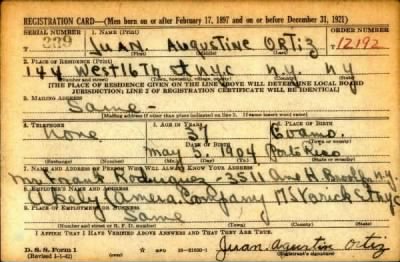 REGISTRATION CARD—(Men born on or after February 17, 1897 and on or before December 31, 1921)
SERIAL NUMBER 1. NAME (Print) ORDER NUMBER
329 JUAN AUGUSTINE ORTIZ 12192
(First) (Middle) (Last)
2. PLACE OF RESIDENCE (Print)
144 West 16Th St NYC N.Y. NY
(Number and street) (Town, township, village, or city) (County) (State)
[THE PLACE OF RESIDENCE GIVEN ON THE LINE ABOVE WILL DETERMINE LOCAL BOARD
JURISDICTION; LINE 2 OF REGISTRATION CERTIFICATE WILL BE IDENTICAL]
3. MAILING ADDRESS
Same -
[Mailing address if other than place indicated on line 2. If same insert word same]
4. TELEPHONE 5. AGE IN YEARS 6. PLACE OF BIRTH
None 37
DATE OF BIRTH (Town or county)
May 5, 1904 Porto Rico
(Exchange) (Number) (Mo.) (Day) (Yr.) (State or country)
7. NAME AND ADDRESS OF PERSON WHO WILL ALWAYS KNOW YOUR ADDRESS
Rodriquez - 3511 Ave H. Brooklyn N.Y.
8. EMPLOYER'S NAME AND ADDRESS
Akely Camera Company Varick St NYC
9. PLACE OF EMPLOYMENT OR BUSINESS
Same
(Number and street or R. F. D. number) (Town) (County) (State)
I AFFIRM THAT I HAVE VERIFIED ABOVE ANSWERS AND THAT THEY ARE TRUE.
D. S. S. Form 1
(Revised 1-1-42) Juan Agustin Ortiz
(Registrant's signature)